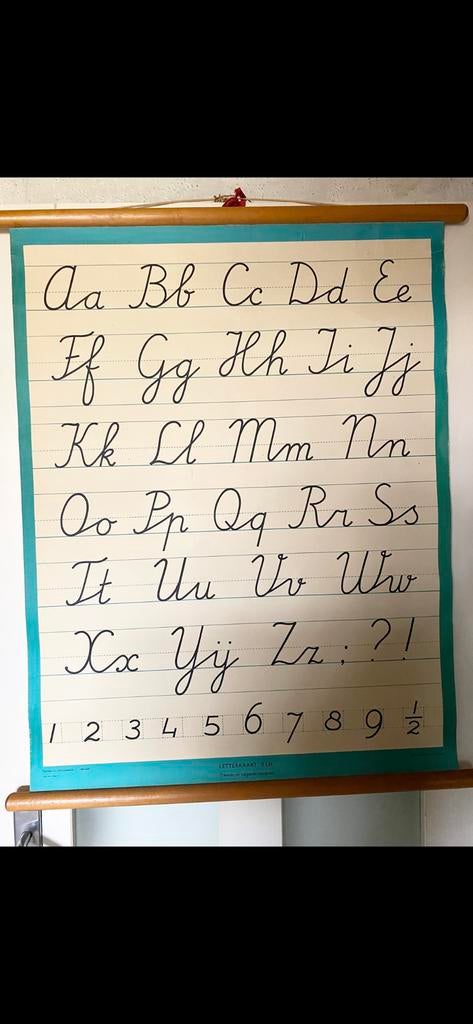 Aa Bb Cc Dd Ee
Ff Gg Hh Ii Jj
Kk Ll Mm Nn
Oo Pp Qq Rr Ss
Tt Uu Vv Ww
Xx Yÿ Zz ; ? !
1 2 3 4 5 6 7 8 9 1/2
LETTERKAART